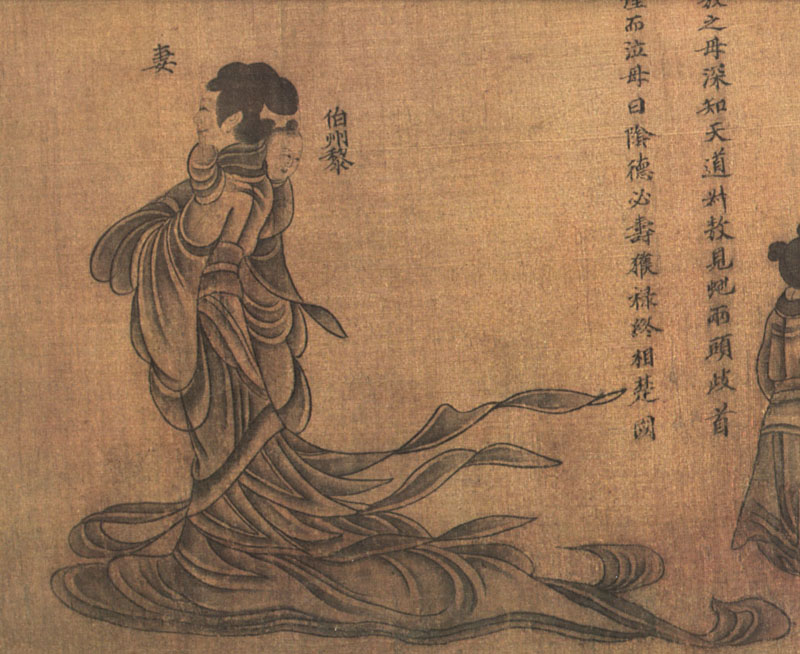 敖之母深知天道叔敖見虵兩頭歧首
埋而泣母曰陰德必壽獲祿終相楚國
伯州黎
妻